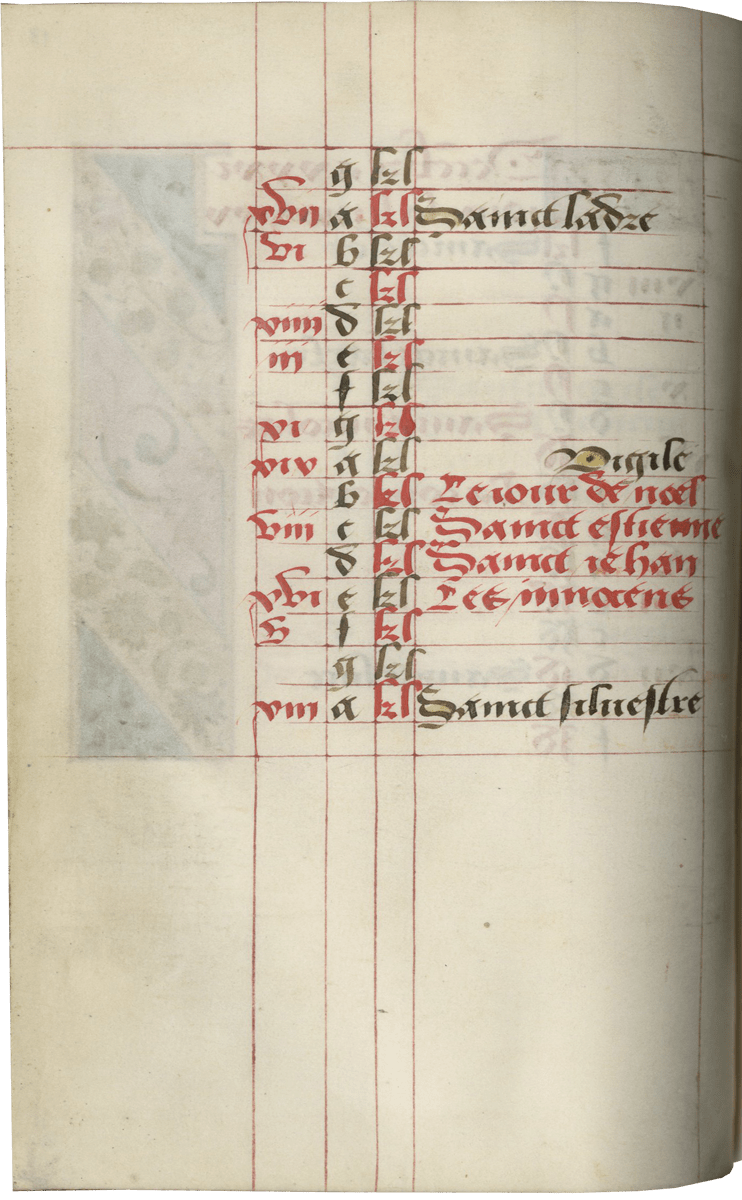 g kl
xvii a kl Sainct ladre
vi b kl
c kl
xiiii d kl
iii e kl
f kl
xi g kl
xix a kl Vigile
b kl Le iour de noel
viii c kl Sainct estienne
d kl Sainct iehan
xvi e kl Les innocens
v f kl
g kl
xiii a kl Sainct siluestre